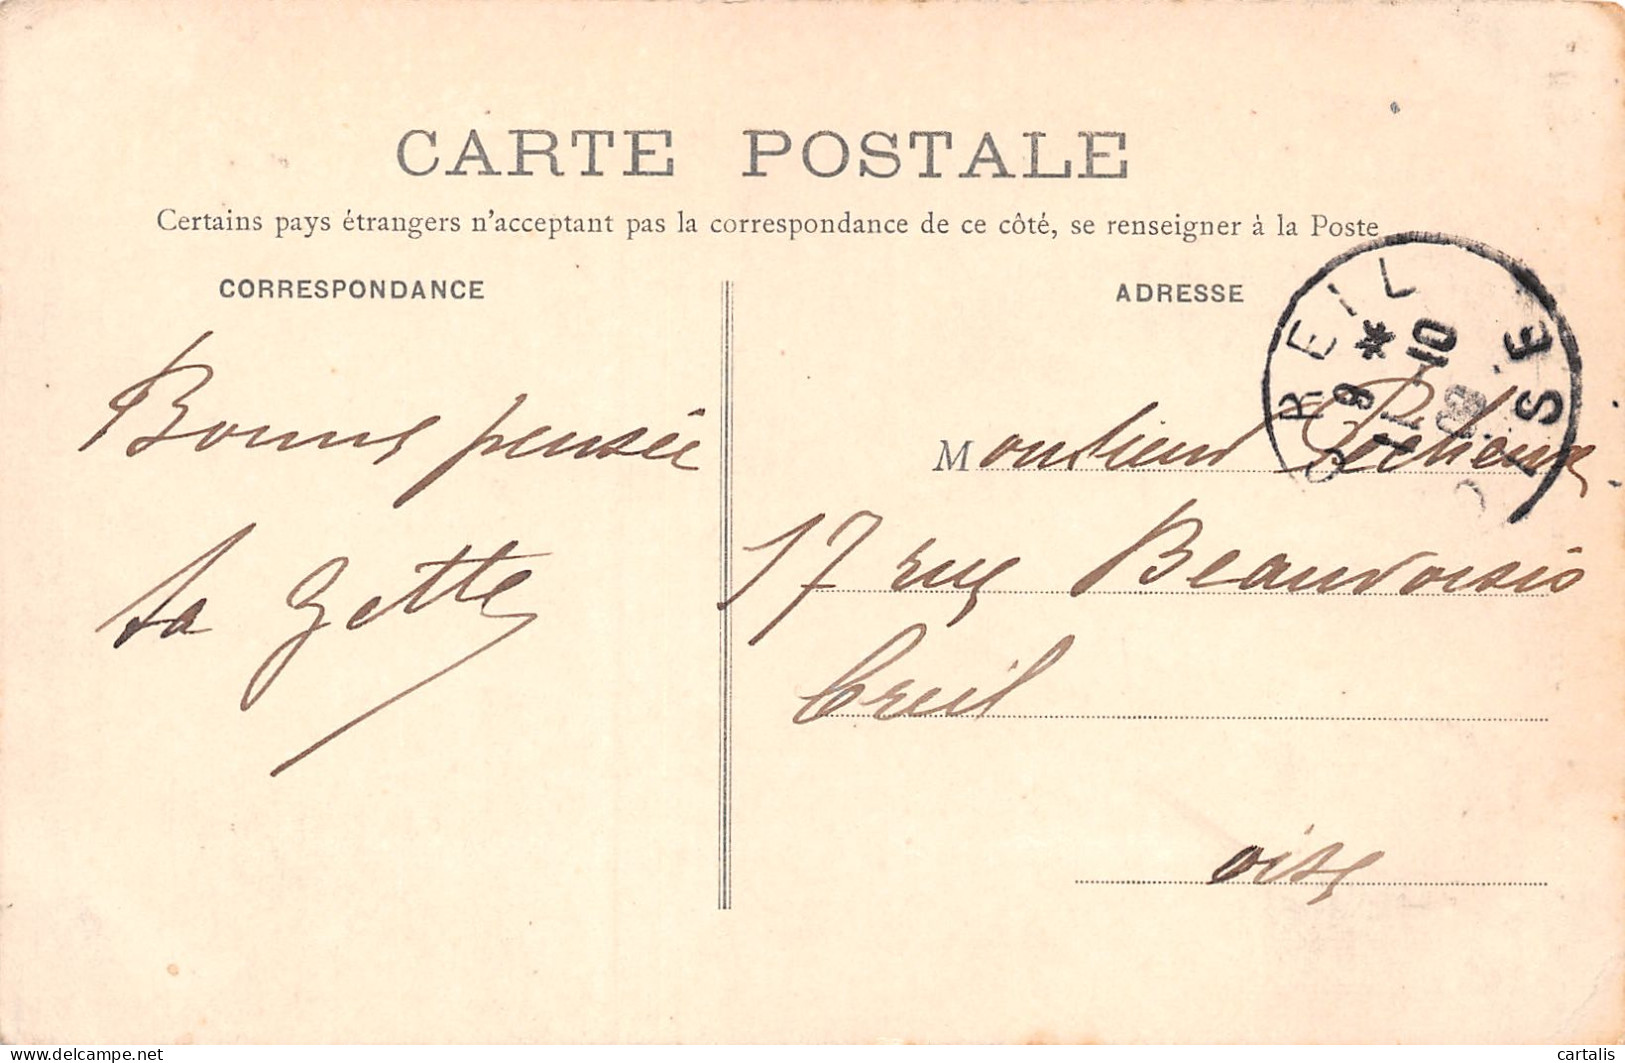 CARTE POSTALE
Certains pays étrangers n'acceptant pas la correspondance de ce côté, se renseigner à la Poste
CORRESPONDANCE
ADRESSE
CREIL
OISE
9 *
10
Bonne pensée
ta Gette
Monsieur
17 rue Beauvoisis
Creil
oise
delcampe.net
cartalis